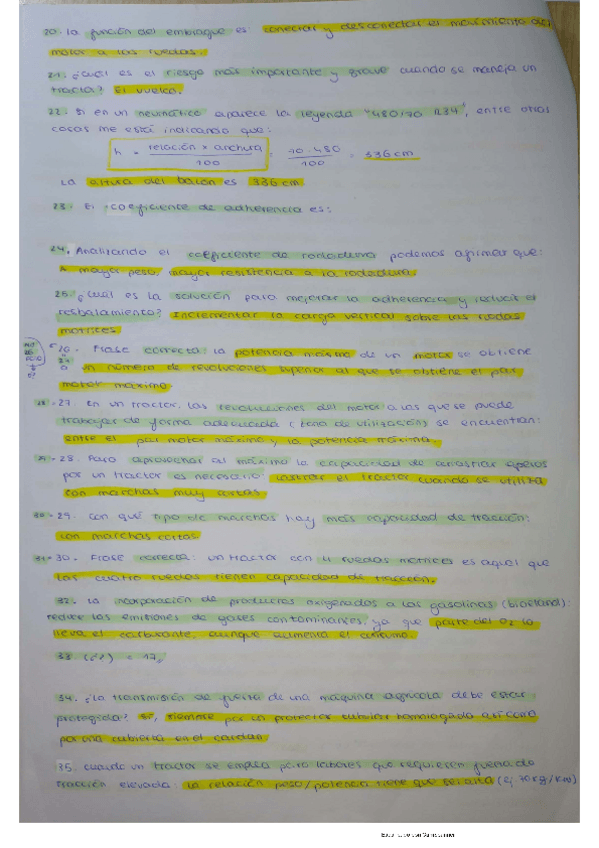 20. La función del embrague es: conectar y desconectar el movimiento del
motor a las ruedas.
21. ¿Cuál es el riesgo más importante y grave cuando se maneja un
tractor? El vuelco.
22. Si en un neumático aparece la leyenda "480/70 R34", entre otras
cosas me está indicando que:
h = relación x anchura / 100 = 70·480 / 100 = 336cm
La altura del balón es 336cm
23. El coeficiente de adherencia es:
24. Analizando el coeficiente de rodadura podemos afirmar que:
A mayor peso, mayor resistencia a la rodadura.
25. ¿Cuál es la solución para mejorar la adherencia y reducir el
resbalamiento? Incrementar la carga vertical sobre las ruedas
motrices
Frase correcta: la potencia máxima de un motor se obtiene
a un número de revoluciones superior al que se obtiene el par
motor máximo
28-27. En un tractor, las revoluciones del motor a las que se puede
trabajar de forma adecuada (zona de utilización) se encuentran:
entre el par motor máximo y la potencia máxima.
29-28. Para aprovechar al máximo la capacidad de arrastrar aperos
por un tractor es necesario: lastrar el tractor cuando se utiliza
con marchas muy cortas
30-29. Con qué tipo de marchas hay más capacidad de tracción:
con marchas cortas
31-30. Frase correcta: un tractor con 4 ruedas motrices es aquel que
las cuatro ruedas tienen capacidad de tracción.
32. La incorporación de productos oxigenados a las gasolinas (bioetanol):
reduce las emisiones de gases contaminantes, ya que parte del O2 lo
lleva el carburante, aunque aumenta el consumo.
33. (i?) = 17,
34. ¿La transmisión de fuerza de una máquina agrícola debe estar
protegida? Sí, siempre por un protector tubular homologado así como
por una cubierta en el cardan
35. Cuando un tractor se emplea para labores que requieren fuerza de
tracción elevada: la relación peso/potencia tiene que ser alta (ej 70kg/kW)